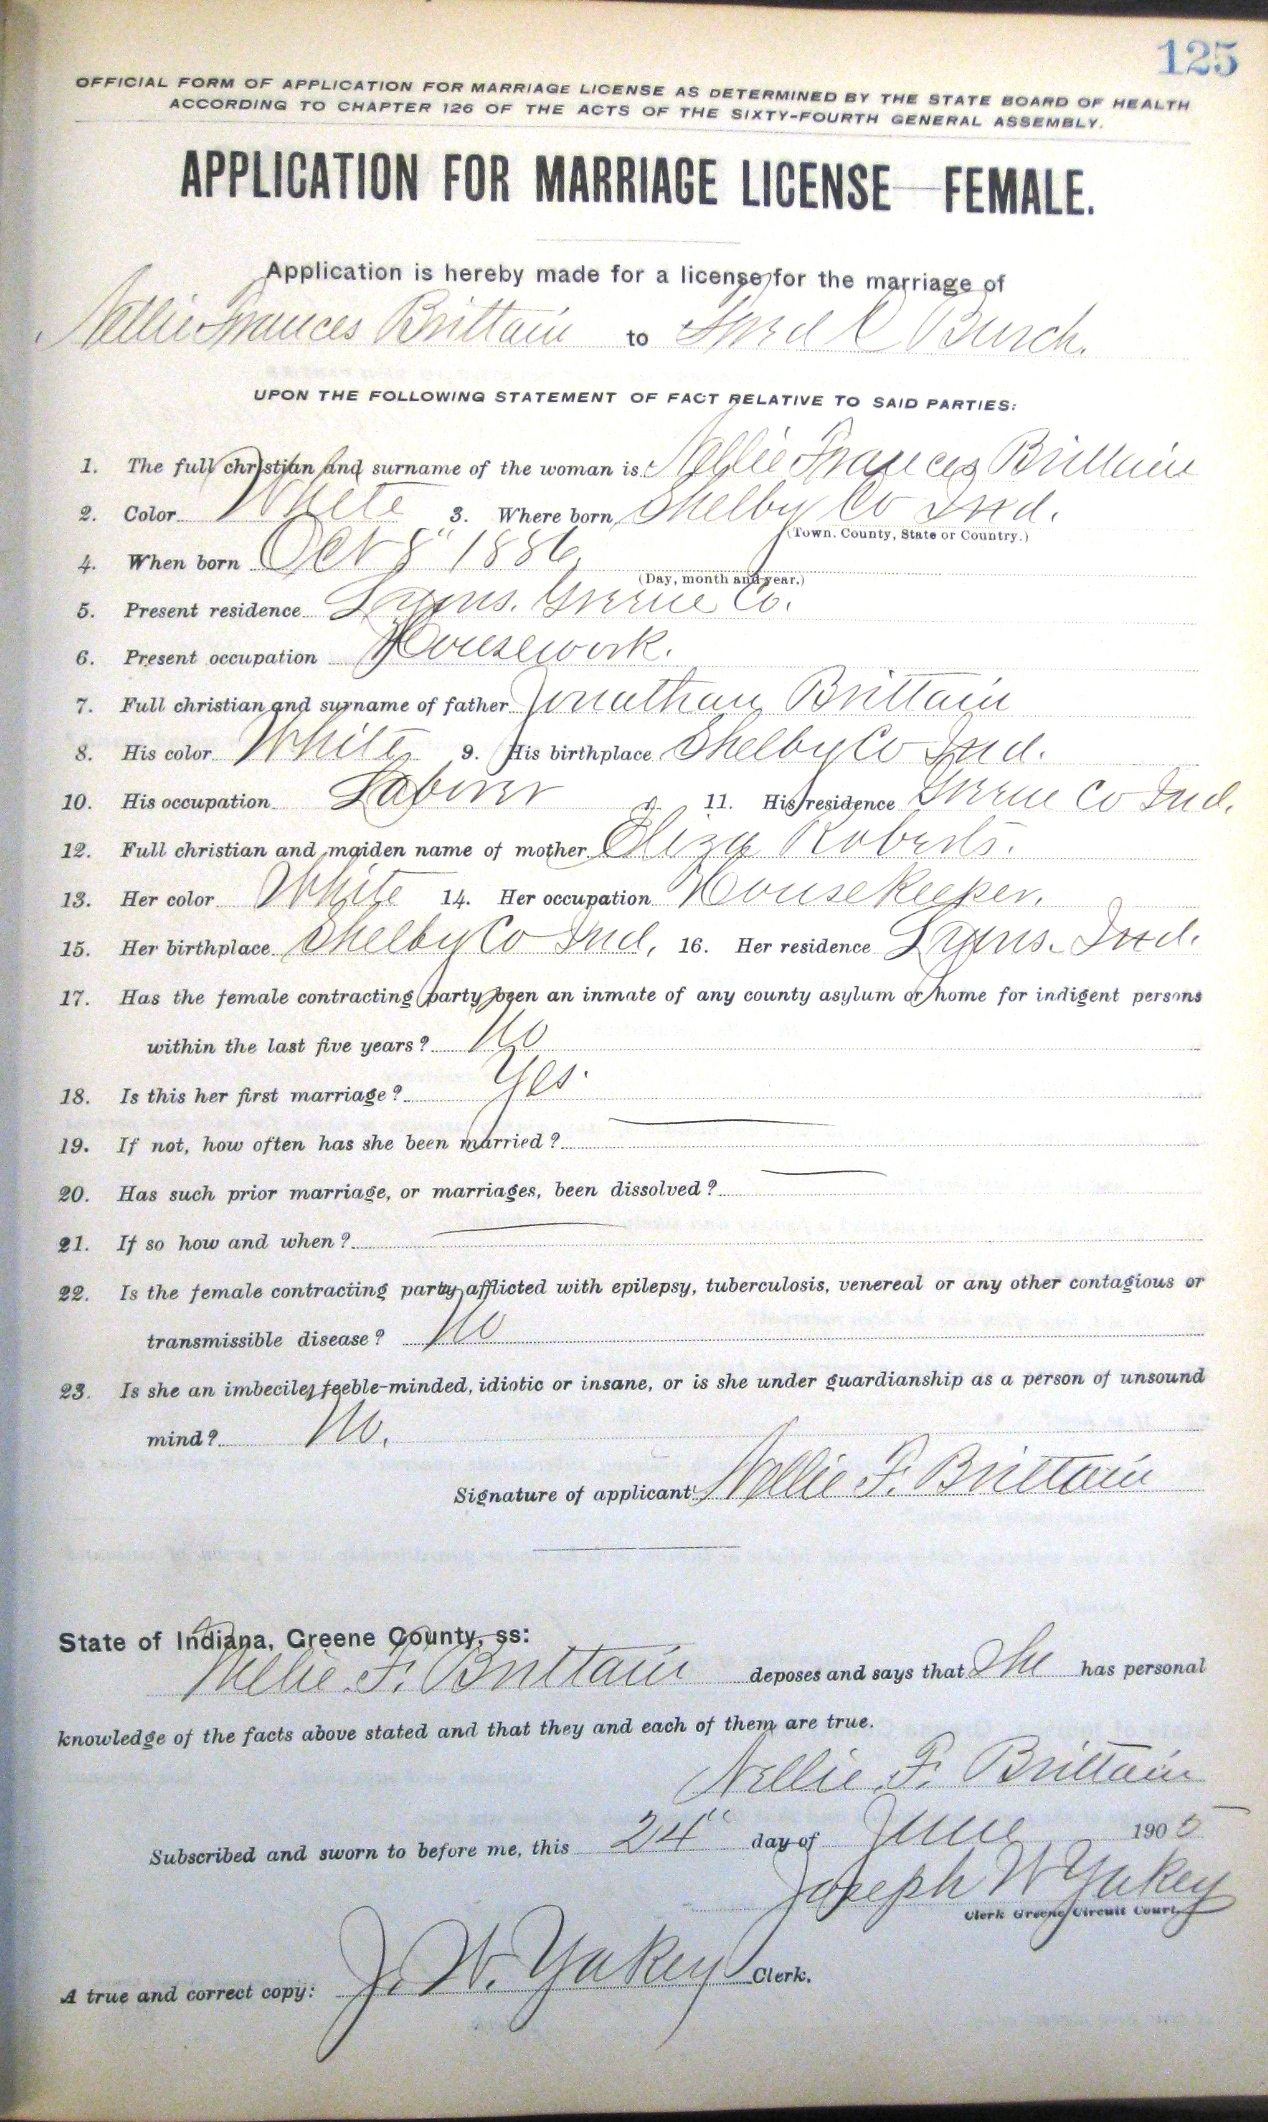 125
OFFICIAL FORM OF APPLICATION FOR MARRIAGE LICENSE AS DETERMINED BY THE STATE BOARD OF HEALTH
ACCORDING TO CHAPTER 126 OF THE ACTS OF THE SIXTY-FOURTH GENERAL ASSEMBLY.
APPLICATION FOR MARRIAGE LICENSE—FEMALE.
Application is hereby made for a license for the marriage of
Nellie Frances Brittain to Fred C Burch.
UPON THE FOLLOWING STATEMENT OF FACT RELATIVE TO SAID PARTIES:
1. The full christian and surname of the woman is Nellie Frances Brittain
2. Color White 3. Where born Shelby Co Ind.
(Town, County, State or Country.)
4. When born Oct 8" 1886
(Day, month and year.)
5. Present residence Lyons. Greene Co.
6. Present occupation Housework.
7. Full christian and surname of father Jonathan Brittain
8. His color White 9. His birthplace Shelby Co Ind.
10. His occupation Laborer 11. His residence Greene Co Ind.
12. Full christian and maiden name of mother Eliza Roberts.
13. Her color White 14. Her occupation Housekeeper.
15. Her birthplace Shelby Co Ind, 16. Her residence Lyons. Ind.
17. Has the female contracting party been an inmate of any county asylum or home for indigent persons
within the last five years? No
18. Is this her first marriage? Yes.
19. If not, how often has she been married?
20. Has such prior marriage, or marriages, been dissolved?
21. If so how and when?
22. Is the female contracting party afflicted with epilepsy, tuberculosis, venereal or any other contagious or
transmissible disease? No
23. Is she an imbecile, feeble-minded, idiotic or insane, or is she under guardianship as a person of unsound
mind? No.
Signature of applicant: Nellie F. Brittain
State of Indiana, Greene County, ss:
Nellie F. Brittain deposes and says that She has personal
knowledge of the facts above stated and that they and each of them are true.
Nellie F. Brittain
Subscribed and sworn to before me, this 24" day of June 1905
Joseph W Yakey
Clerk Greene Circuit Court.
A true and correct copy: J. W. Yakey Clerk.